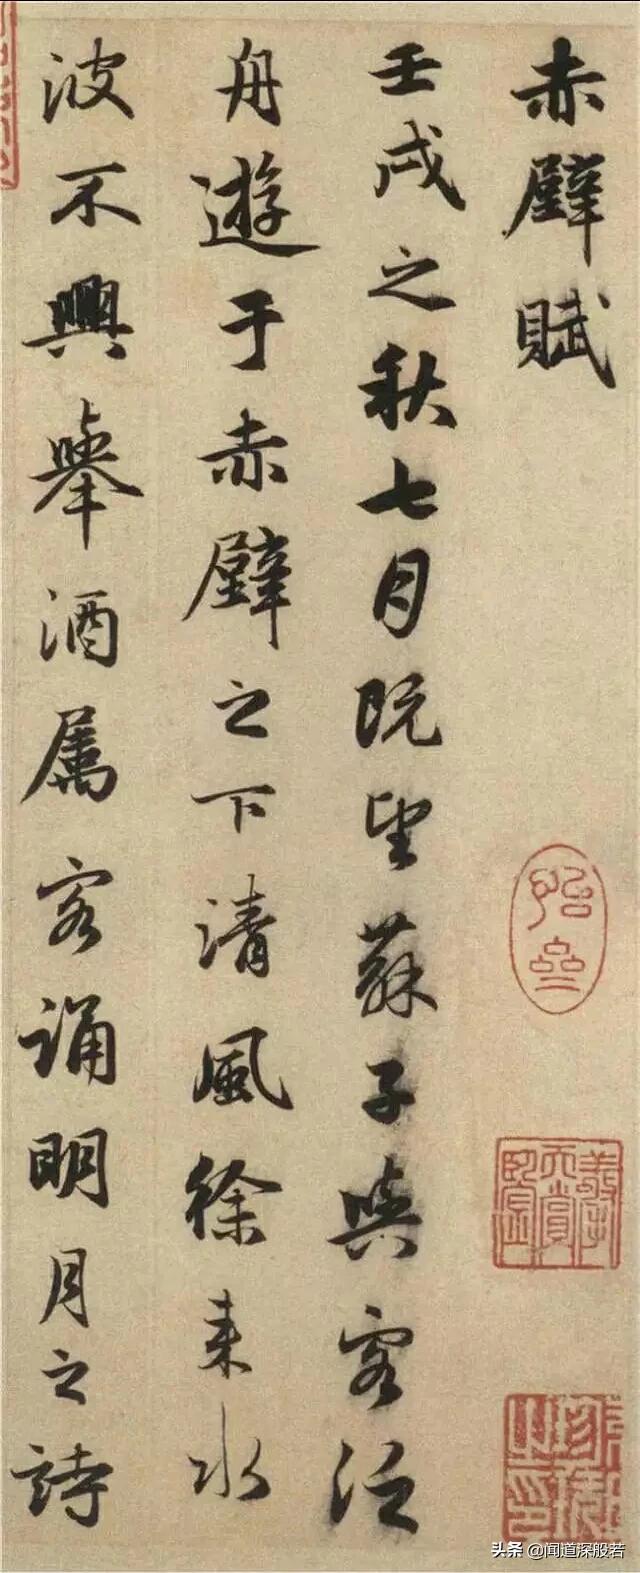 赤壁賦
壬戌之秋七月既望蘇子與客泛
舟遊于赤壁之下清風徐来水
波不興舉酒属客誦明月之詩
头条 @闻道深般若